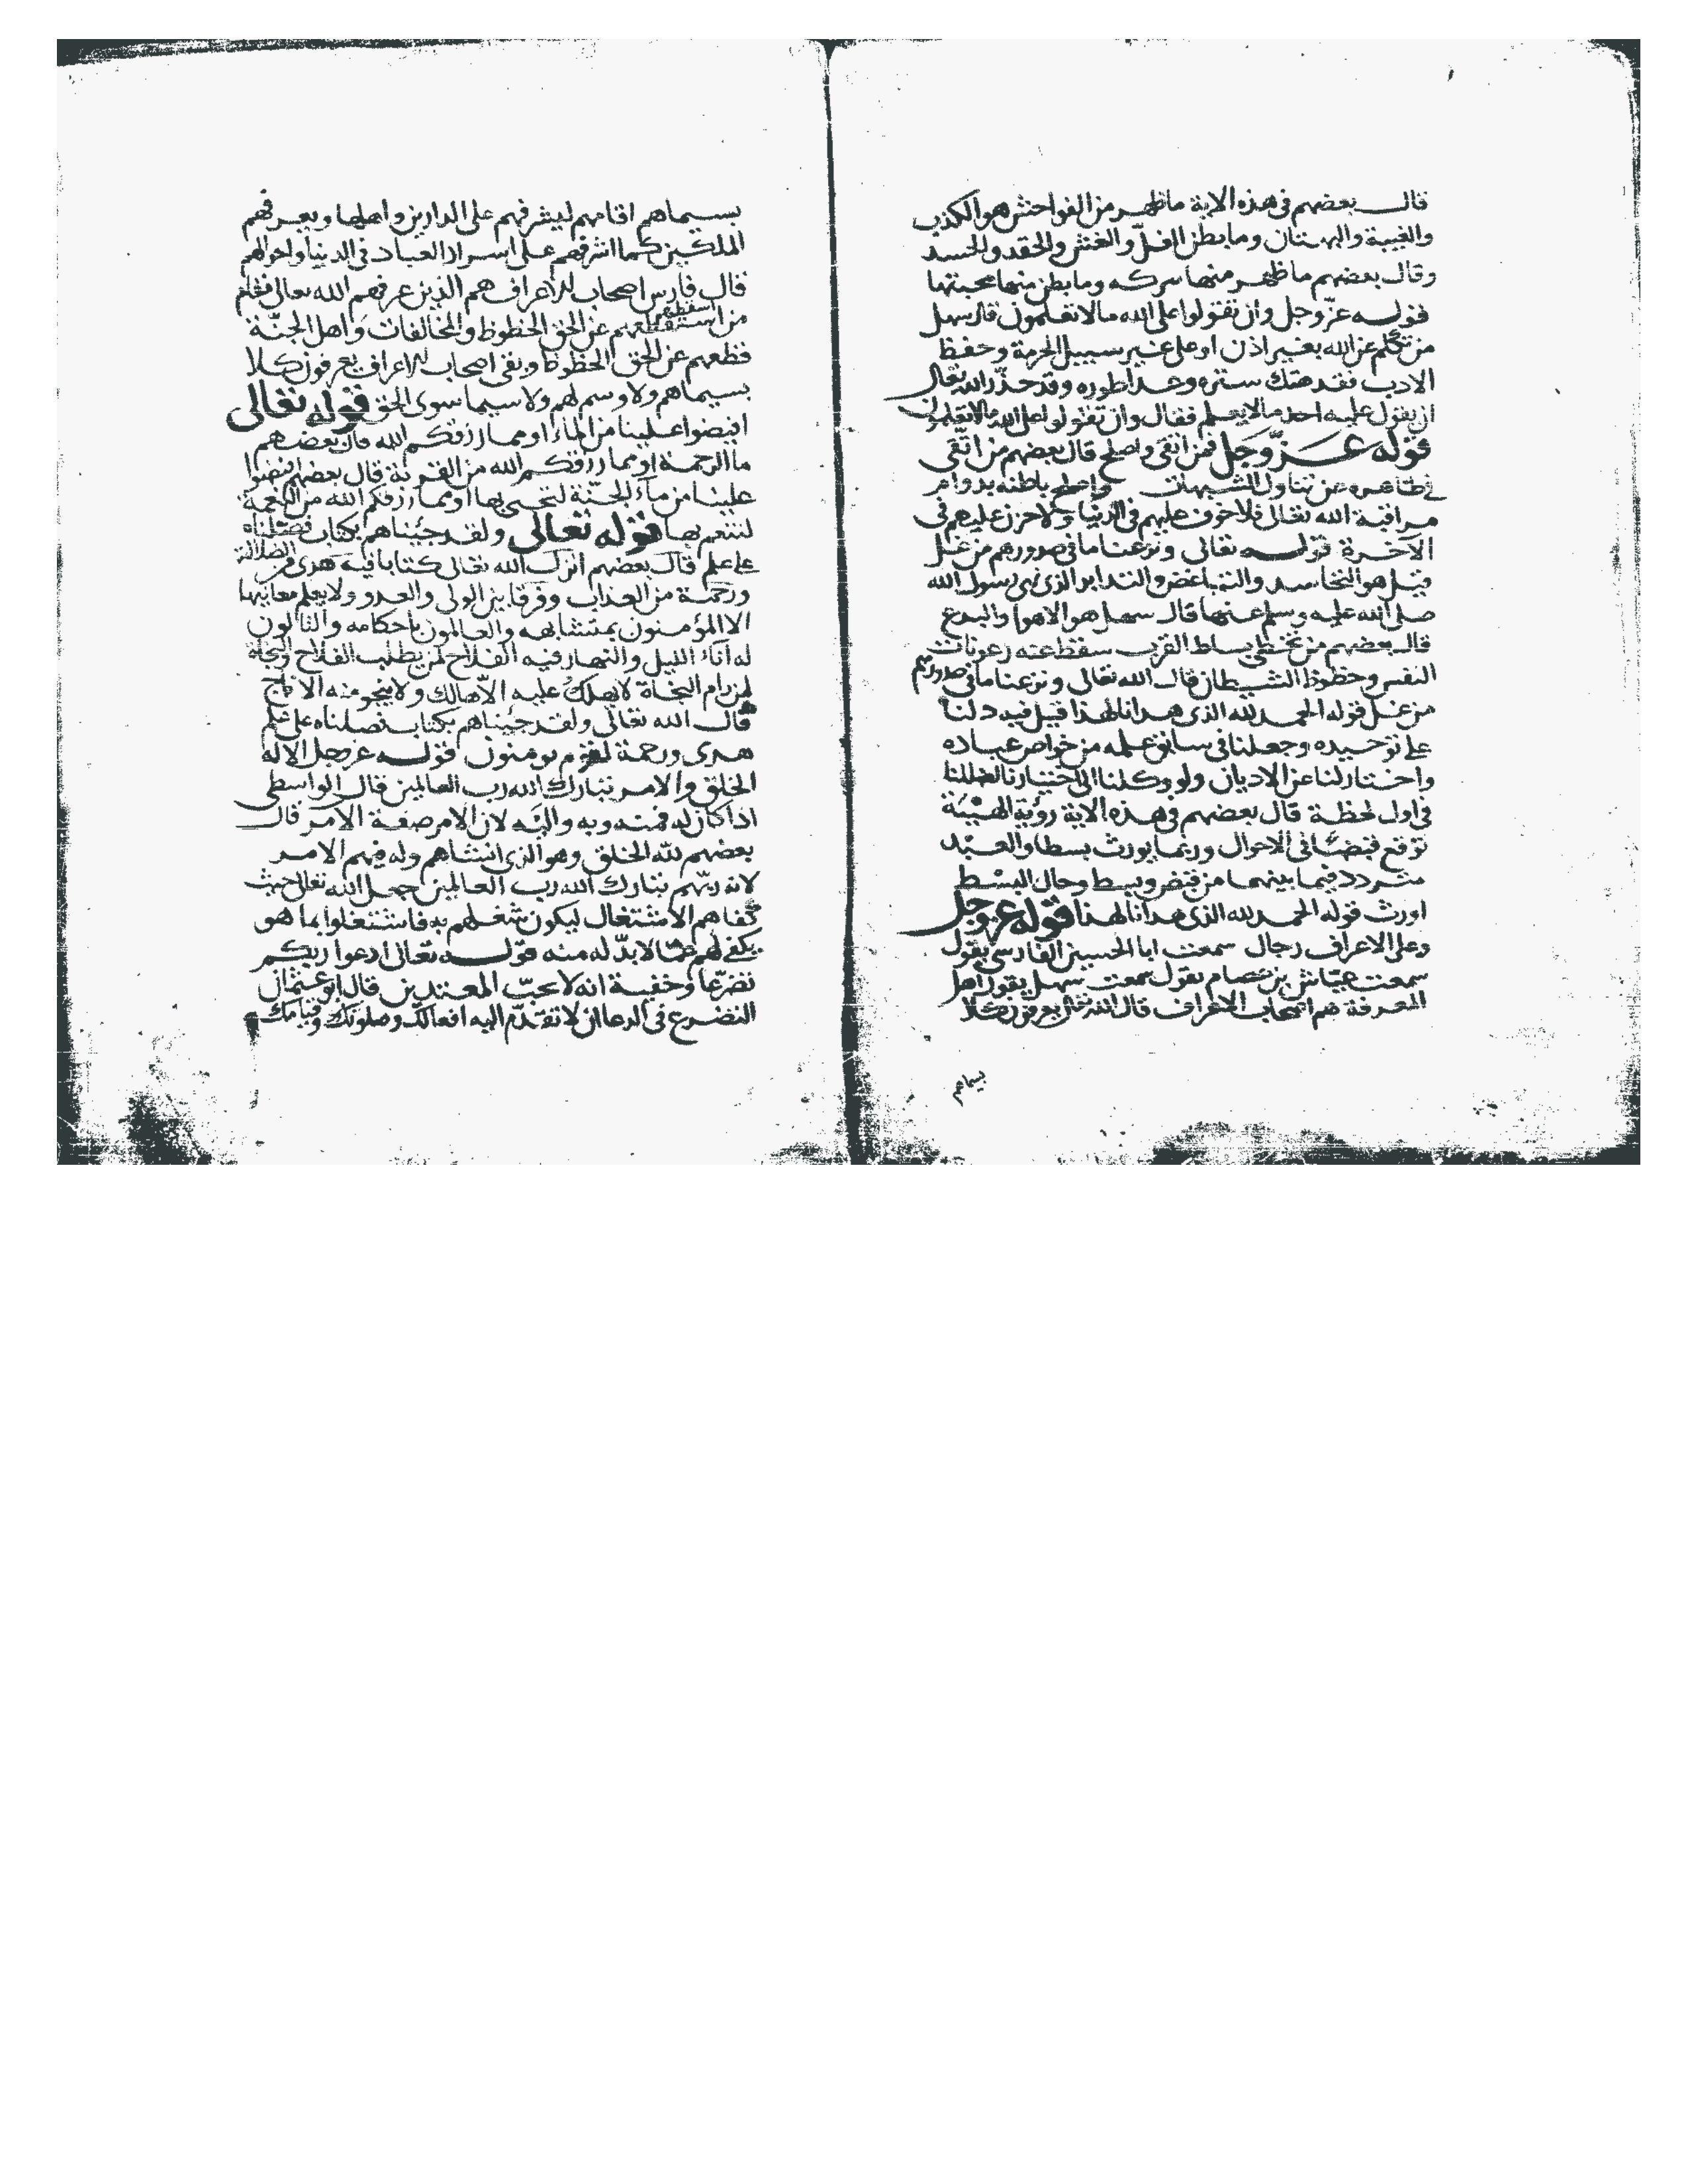 قال بعضهم فى هذه الاية ما ظهر من الفواحش هو الكذب
والغيبة والبهتان وما بطن الغلّ والغش والحقد والحسد
وقال بعضهم ما ظهر منها تركه وما بطن منها محبتها
قوله عزّ وجل وان تقولوا على الله مالا تعلمون قال سهل
من تكلم عن الله بغير اذن او على غير سبيل الحرمة وحفظ
الادب فقد هتك ستره وعدا طوره وقد حذّر الله تعالى
ان يقول عليه احد مالا يعلم فقال وان تقولوا على الله مالا تعلمون
قوله عزّ وجل فمن اتقى واصلح قال بعضهم من اتقى
فى ظاهره عن تناول الشبهات واصلح باطنه بدوام
مراقبة الله تعالى فلا خوف عليهم فى الدنيا ولا حزن عليهم فى
الآخرة قوله تعالى ونزعنا ما فى صدورهم من غل
قيل هو التحاسد والتباغض والتدابر الذى نهى رسول الله
صلى الله عليه وسلم عنها قال سهل هو الاهوا والبدع
قال بعضهم من تخطى بساط القرب سقط عنه رعونات
النفس وحظوظ الشيطان قال الله تعالى ونزعنا ما فى صدورهم
من غل قوله الحمد لله الذى هدانا لهذا قيل فيه دلنا
على توحيده وجعلنا فى سابق علمه من خواص عباده
واختار لنا عن الاديان ولو وكلنا الى اختيارنا لضللنا
فى اول لحظة قال بعضهم فى هذه الاية رؤية الهيبة
توقع قبضا فى الاحوال وربما يورث بسطا والعبد
متردد فيما بينهما من قبض وبسط وحال البسط
اورث قوله الحمد لله الذى هدانا لهذا قوله عزوجل
وعلى الاعراف رجال سمعت ابا الحسين الفارسى يقول
سمعت عيّاش بن عصام يقول سمعت سهل يقول اهل
المعرفة هم اصحاب الاعراف قال الله تعالى يعرفون كلا
بسيماهم
بسيماهم اقامهم ليشرفهم على الدارين واهلها ويعرفهم
الملكين كما اشرفهم على اسرار العباد فى الدنيا واحوالهم
قال فارس اصحاب الاعراف هم الذين عرفهم الله تعالى
عن الحق الحظوظ والمخالفات واهل الجنّة
قطعهم عن الحق الحظوظ وبقى اصحاب الاعراف يعرفون كلا
بسيماهم ولا وسم لهم ولا سيما سوى الحق قوله تعالى
افيضوا علينا من الماء او مما رزقكم الله قال بعضهم
ما الرحمة او مما رزقكم الله من القربة قال بعضهم افيضوا
علينا من ماء الجنّة لنحيى بها او مما رزقكم الله من النعمة
لنتنعم بها قوله تعالى ولقد جئناهم بكتاب فصلناه
على علم قال بعضهم انزل الله تعالى كتابا فيه هدى من الضلالة
ورحمة من العذاب وفرقا بين الولى والعدو ولا يعلم معانيها
الا المؤمنون بمتشابهه والعالمون باحكامه والتالون
له آناء الليل والنهار فيه الفلاح لمن يطلب الفلاح والنجاة
لمن رام النجاة لا يهلك عليه الا هالك ولا ينجو منه الا ناج
قال الله تعالى ولقد جيناهم بكتاب فصلناه على علم
هدى ورحمة لقوم يومنون قوله عز وجل الا له
الخلق والامر تبارك الله رب العالمين قال الواسطى
اذا كان له فمنه وبه واليه لان الامر صفة الامر قال
بعضهم لله الخلق وهو الذى انشاهم وله فيهم الامر
لانه ربّهم تبارك الله رب العالمين جهل الله تعالى حيث
كفاهم الاشتغال ليكون شغلهم به فاشتغلوا بما هو
يكفى لهم عمّا لابدّ له منه قوله تعالى ادعوا ربكم
تضرّعا وخفية انه لا يحبّ المعتدين قال ابو عثمان
التضرع فى الدعا ان لا تقدّم اليه افعالك وصلوتك وقيامك